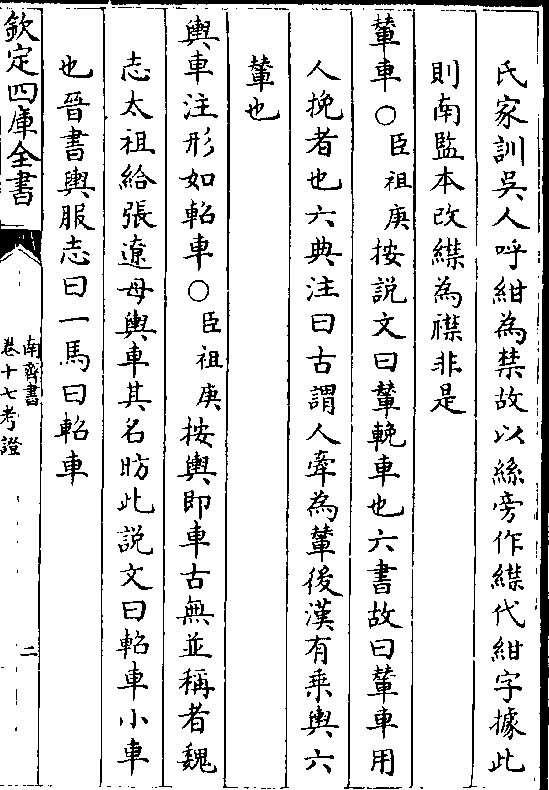 氏家訓吳人呼紺為禁故以絲旁作繏代紺字據此
則南監本改繏為襟非是
輦車○臣祖庚按說文曰輦輓車也六書故曰輦車用
人挽者也六典注曰古謂人牽為輦後漢有乗輿六
輦也
輿車注形如軺車○臣祖庚按輿即車古無並稱者魏
志太祖給張遼母輿車其名昉此說文曰軺車小車
也晉書輿服志曰一馬曰軺車
欽定四庫全書
南齊書
卷十七考證
二